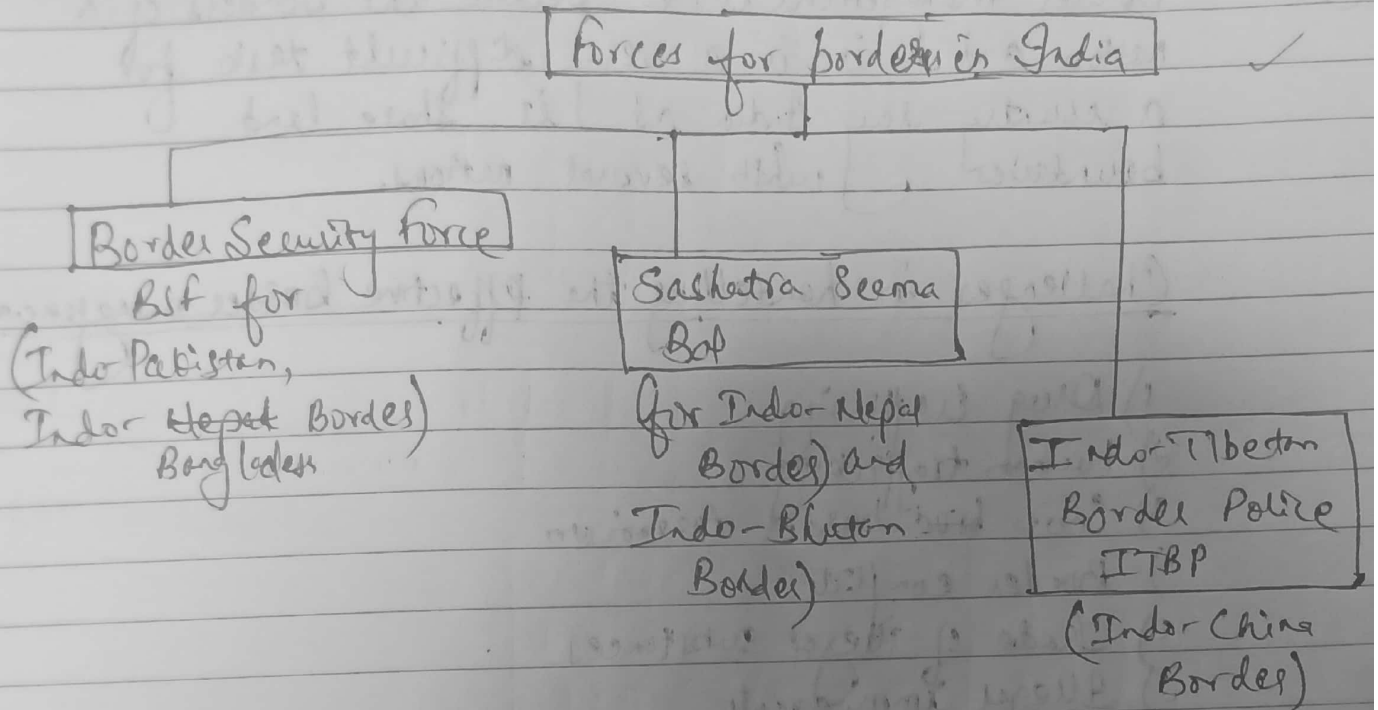 Forces for borders in India
Border Security Force
BSF for
(Indo Pakistan,
Indo- Nepal Border)
Bangladesh
Sashatra Seema
Bal
(for Indo-Nepal
Border) and
Indo-Bhutan
Border)
Indo-Tibetan
Border Police
ITBP
(Indo-China
Border)